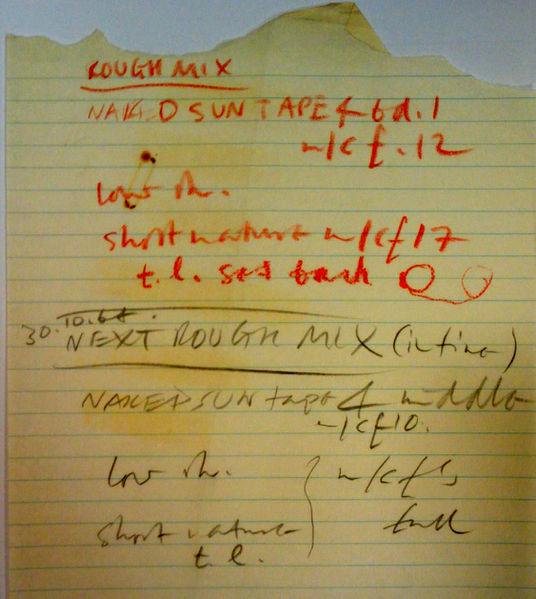 ROUGH MIX
NAKED SUN TAPE 4 bd. 1
n/c f. 12
low rh.
short nature n/c f 17
t.l. set back
30.10.64.
NEXT ROUGH MIX (in time)
NAKED SUN tape 4 middle
n/c f 10.
low rh. n/c f
short nature full
t.l.